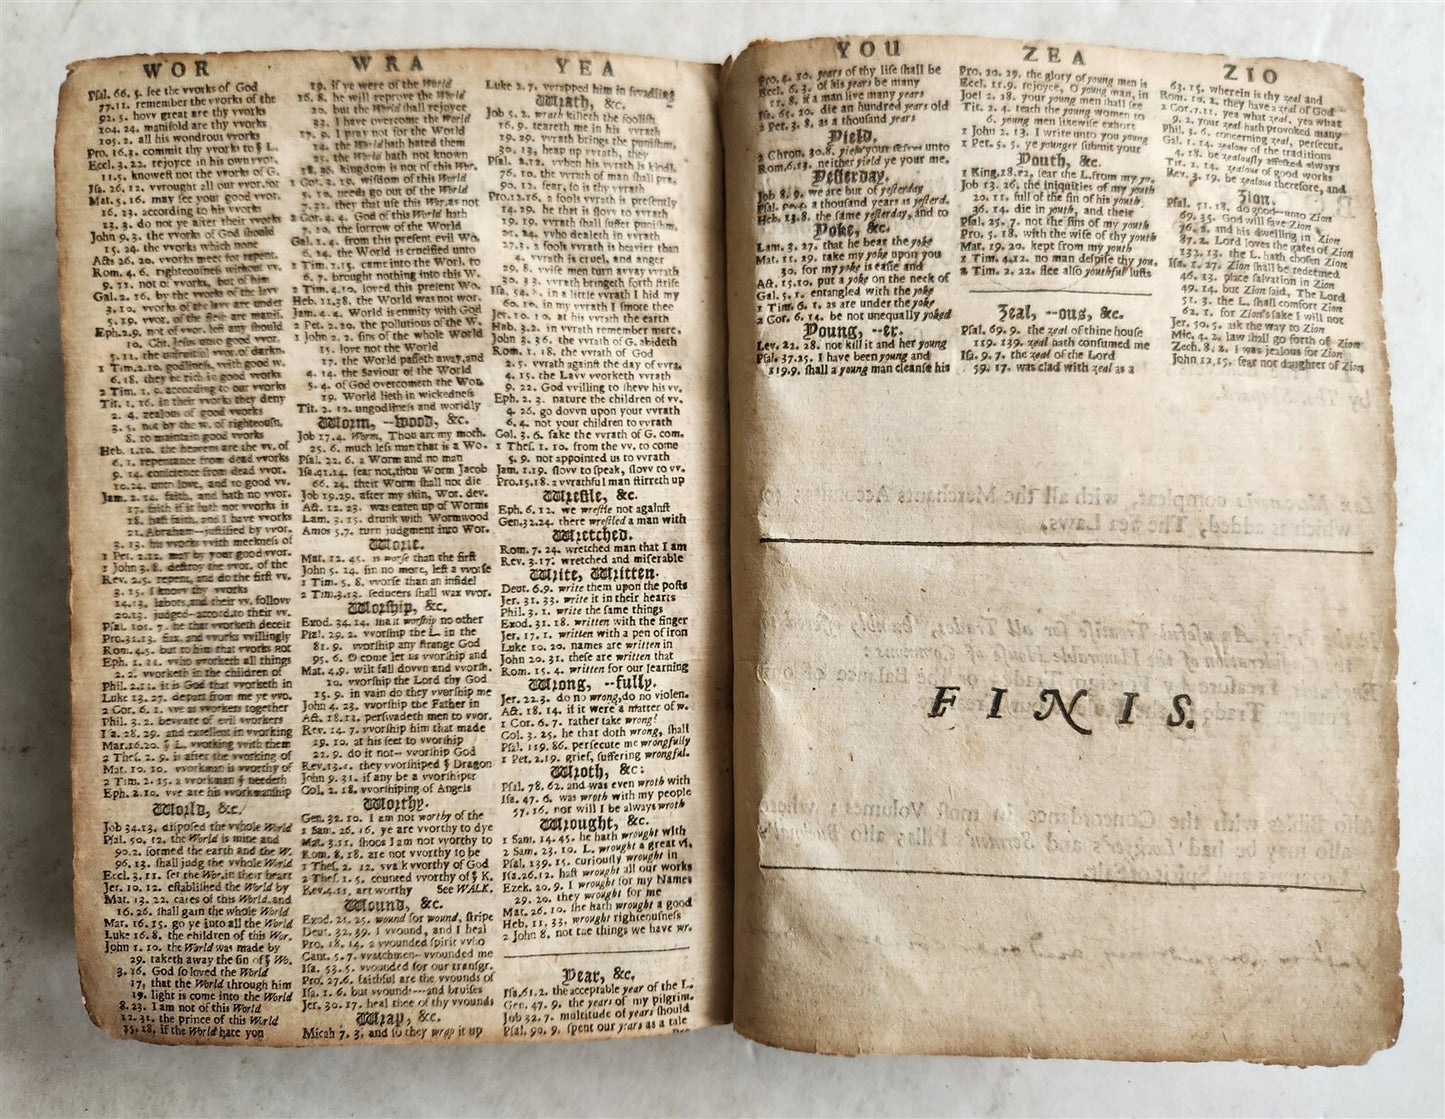 WOR
Psal. 66. 5. see the vvorks of God
77.11. remember the vvorks of the
92. 5. hovv great are thy vvorks
104. 24. manifold are thy vvorks
105. 2. all his wondrous vvorks
Pro. 16.3. commit thy vvorks to
Eccl. 3. 22. rejoyce in his own vvor.
11.5. knoweſt not the vvorks of G.
Iſa. 26. 12. vvrought all our vvor. for
Mat. 5. 16. may ſee your good vvor.
16. 23. according to his vvorks
23. 3. do not ye after their vvorks
John 9. 3. the vvorks of God ſhould
15. 24. the vvorks which none
Acts 26. 20. vvorks meet for repent.
Rom. 4. 6. righteouſneſs without vv.
9. 11. not of vvorks, but of him
Gal. 2. 16. by the vvorks of the lavv
3. 10. vvorks of the lavv are under
5. 19. vvor. of the fleſh are manif.
Eph.2.9. not of vvor. leſt any ſhould
10. Chr. Jeſus unto good vvor.
5. 11. the unfruitful vvor. of darkn.
1 Tim.2.10. godlineſs, with good w.
6. 18. they be rich in good vvorks
2 Tim. 1. 9. according to our vvorks
Tit. 1. 16. in their vvorks they deny
2. 4. zealous of good vvorks
3. 5. not by the w. of righteouſn.
8. to maintain good vvorks
Heb. 1.10. the heavens are the vv. of
6. 1. repentance from dead vvorks
9. 14. conſcience from dead vvor.
10.24. unto love, and to good vv.
Jam. 2. 14. faith, and hath no vvor.
17. faith if it hath not vvorks is
18. haſt faith, and I have vvorks
21. Abraham--juſtified by vvor.
3. 13. his vvorks with meekneſs of
1 Pet. 2.12. may by your good vvor.
1 John 3. 8. deſtroy the vvor. of the
Rev. 2.5. repent, and do the firſt vv.
3. 15. I know thy vvorks
14.13. labors, and their vv. follovv
20.13. judged--accord. to their vv.
Pſal. 101. 7. he that vvorketh deceit
Pro.31.13. flax, and vvorks vvillingly
Rom. 4.5. but to him that vvorks not
Eph. 1. 11. vvho vvorketh all things
2. 2. vvorketh in the children of
Phil. 2.13. it is God that vvorketh in
Luke 13. 27. depart from me ye vvo.
2 Cor. 6. 1. vve as vvorkers together
Phil. 3. 2. beware of evil vvorkers
Iſa. 28. 29. and excellent in vvorking
Mar.16.20. L. vvorking vvith them
2 Theſ. 2. 9. is after the vvorking of
Mat. 10. 10. vvorkman is vvorthy of
2 Tim. 2. 15. a vvorkman needeth
Eph. 2. 10. vve are his vvorkmanſhip
World, &c.
Job 34.13. diſpoſed the vvhole World
Pſal. 50. 12. the World is mine and
90.2. formed the earth and the W.
96. 13. ſhall judg the vvhole World
Eccl. 3. 11. ſet the Wor. in their heart
Jer. 10. 12. eſtabliſhed the World by
Mat. 13. 22. cares of this World, and
16. 26. ſhall gain the whole World
Mar. 16. 15. go ye into all the World
Luke 16. 8. the children of this Wor.
John 1. 10. the World was made by
29. taketh away the ſin of Wo.
3. 16. God ſo loved the World
17, that the World through him
19. light is come into the World
8. 23. I am not of this World
12. 31. the prince of this World
15. 18. if the World hate you
WRA
19. if ye were of the World
16. 8. he will reprove the World
20. but the World ſhall rejoyce
33. I have overcome the World
17. 9. I pray not for the World
14. the World hath hated them
25. the World hath not known
18. 36. kingdom is not of this Wor.
1 Cor. 2. 19. wiſdom of this World
5. 10. needs go out of the World
7. 31. they that uſe this Wor. as not
2 Cor. 4. 4. God of this World hath
7. 10. the ſorrow of the World
Gal. 1. 4. from this preſent evil Wo.
6. 14. the World is crucified unto
1 Tim. 1. 15. came into the Worl. to
6. 7. brought nothing into this W.
2 Tim. 4. 10. loved this preſent Wo.
Heb. 11.38. the World was not wor.
Jam. 4. 4. World is enmity with God
2 Pet. 2. 20. the pollutions of the W.
1 John 2. 2. ſins of the whole World
15. love not the World
17. the World paſſeth away, and
4. 14. the Saviour of the World
5. 4. of God overcometh the Wor.
19. World lieth in wickedneſs
Tit. 2. 12. ungodlineſs and worldly
Worm, --wood, &c.
Job 17.4. Worm, Thou art my moth.
25. 6. much leſs man that is a Wo.
Pſal. 22. 6. a Worm and no man
Iſa.41.14. fear not, thou Worm Jacob
66. 24. their Worm ſhall not die
Job 19.29. after my skin, Wor. dev.
Act. 12. 23. was eaten up of Worms
Lam. 3. 15. drunk with Wormwood
Amos 5.7. turn judgment into Wor.
Worſe.
Mat. 12. 45. is worſe than the firſt
John 5. 14. ſin no more, leſt a vvorſe
1 Tim. 5. 8. vvorſe than an infidel
2 Tim.3.13. ſeducers ſhall wax vvor.
Worſhip, &c.
Exod. 34. 14. ſhalt worſhip no other
Pſal. 29. 2. vvorſhip the L. in the
81. 9. vvorſhip any ſtrange God
95. 6. O come let us vvorſhip and
Mat. 4.9. wilt fall dovvn and vvorſh.
10. vvorſhip the Lord thy God
15. 9. in vain do they vvorſhip me
John 4. 23. vvorſhip the Father in
Act. 18.13. perſvvadeth men to vvor.
Rev. 14. 7. vvorſhip him that made
19. 10. at his feet to vvorſhip
22. 9. do it not-- vvorſhip God
Rev.13.4. they vvorſhiped Dragon
John 9. 31. if any be a vvorſhiper
Col. 2. 18. vvorſhiping of Angels
Worthy.
Gen. 32. 10. I am not worthy of the
1 Sam. 26. 16. ye are vvorthy to dye
Mat. 3.11. ſhoos I am not vvorthy to
Rom. 8. 18. are not vvorthy to be
1 Theſ. 2. 12. vvalk vvorthy of God
2 Theſ. 1. 5. counted vvorthy of K.
Rev.4.11. art worthy See WALK.
Wound, &c.
Exod. 21. 25. wound for wound, ſtripe
Deut. 32. 39. I vvound, and I heal
Pro. 18. 14. a vvounded ſpirit vvho
Cant. 5. 7. vvatchmen--vvounded me
Iſa. 53. 5. vvounded for our tranſgr.
Pro. 27.6. faithful are the vvounds of
Iſa. 1. 6. but vvounds---and bruiſes
Jer. 30. 17. heal thee of thy vvounds
Wrap, &c.
Micah 7. 3. and ſo they wrap it up
YEA
Luke 2. 7. vvrapped him in ſwadling
Wrath, &c.
Job 5. 2. wrath killeth the fooliſh
16. 9. teareth me in his vvrath
19. 29. vvrath brings the puniſhm.
30. 13. heap up vvrath, they
Pſal. 2.12. vvhen his vvrath is kindl.
76. 10. the vvrath of man ſhall pra.
90. 12. fear, ſo is thy vvrath
Pro.12.16. a fools vvrath is preſently
14. 29. he that is ſlovv to vvrath
19. 19. vvrath ſhall ſuffer puniſhm,
21. 24. vvho dealeth in vvrath
27.3. a fools vvrath is heavier than
4. vvrath is cruel, and anger
29. 8. vviſe men turn avvay vvrath
30. 33. vvrath bringeth forth ſtrife
Iſa. 54. 8. in a little vvrath I hid my
60. 10. in my vvrath I ſmote thee
Jer. 10. 10. at his vvrath the earth
Hab. 3.2. in vvrath remember merc.
John 3. 36. the vvrath of G. abideth
Rom. 1. 18. the vvrath of God
2. 5. vvrath againſt the day of vvra.
4. 15. the Lavv vvorketh vvrath
9. 22. God vvilling to ſhevv his vv.
Eph. 2. 3. nature the children of vv.
4. 26. go dovvn upon your vvrath
6. 4. not your children to vvrath
Col. 3. 6. ſake the vvrath of G. com.
1 Theſ. 1. 10. from the vv. to come
5. 9. not appointed us to vvrath
Jam. 1.19. ſlovv to ſpeak, ſlovv to vv.
Pro.15.18. a vvrathful man ſtirreth up
Wreſtle, &c.
Eph. 6. 12. we wreſtle not againſt
Gen.32.24. there wreſtled a man with
Wretched.
Rom. 7. 24. wretched man that I am
Rev. 3.17. wretched and miſerable
Write, Written.
Deut. 6.9. write them upon the poſts
Jer. 31. 33. write it in their hearts
Phil. 3. 1. write the ſame things
Exod. 31. 18. written with the finger
Jer. 17. 1. written with a pen of iron
Luke 10. 20. names are written in
John 20. 31. theſe are written that
Rom. 15. 4. written for our learning
Wrong, --fully.
Jer. 22.3. do no wrong, do no violen.
Act. 18. 14. if it were a matter of w.
1 Cor. 6. 7. rather take wrong?
Col. 3. 25. he that doth wrong, ſhall
Pſal. 119. 86. perſecute me wrongfully
1 Pet. 2.19. grief, ſuffering wrongful.
Wroth, &c.
Pſal. 78. 62. and was even wroth with
Iſa. 47. 6. was wroth with my people
57. 16. nor will I be always wroth
Wrought, &c.
1 Sam. 14. 45. he hath wrought with
2 Sam. 23. 10. L. wrought a great vi.
Pſal. 139. 15. curiouſly wrought in
Iſa.26.12. haſt wrought all our works
Ezek. 20. 9. I wrought for my Names
29. 20. they wrought for me
Mat. 26. 10. ſhe hath wrought a good
Heb. 11. 33. wrought righteouſneſs
2 John 8. not the things we have wr.
Year, &c.
Iſa.61.2. the acceptable year of the L.
Gen. 47. 9. the years of my pilgrim.
Job 32. 7. multitude of years ſhould
Pſal. 90. 9. ſpent our years as a tale
YOU
Pro. 4. 10. years of thy life ſhall be
Eccl. 6. 3. of his years be many
11. 8. if a man live many years
Iſa. 65. 20. die an hundred years old
2 Pet. 3. 8. as a thouſand years
Yield.
2 Chron. 30.8. yield your ſelves unto
Rom.6.13. neither yield ye your me.
Yeſterday.
Job 8. 9. we are but of yeſterday
Pſal. 90. 4. a thouſand years as yeſterd.
Heb. 13.8. the ſame yeſterday, and to
Yoke, &c.
Lam. 3. 27. that he bear the yoke
Mat. 11. 29. take my yoke upon you
30. for my yoke is eaſie and
Act. 15.10. put a yoke on the neck of
Gal. 5. 1. entangled with the yoke
1 Tim. 6. 1. as are under the yoke
2 Cor. 6. 14. be not unequally yoked
Young, --er.
Lev. 22. 28. not kill it and her young
Pſal. 37.25. I have been young and
119.9. ſhall a young man cleanſe his
ZEA
Pro. 20. 29. the glory of young men is
Eccl. 11.9. rejoyce, O young man, in
Joel 2. 28. your young men ſhall ſee
Tit. 2. 4. teach the young women to
6. young men likewiſe exhort
1 John 2. 13. I write unto you young
1 Pet. 5. 5. ye younger ſubmit your
Youth, &c.
1 King.18.12, fear the L. from my yo.
Job 13. 26. the iniquities of my youth
20. 11. full of the ſin of his youth
36. 14. die in youth, and their
Pſal. 25. 7. not the ſins of my youth
Pro. 5. 18. with the wife of thy youth
Mat. 19. 20. kept from my youth
1 Tim. 4.12. no man deſpiſe thy you.
2 Tim. 2. 22. flee alſo youthful luſts
Zeal, --ous, &c.
Pſal. 69. 9. the zeal of thine houſe
119. 139. zeal hath conſumed me
Iſa. 9. 7. the zeal of the Lord
59. 17. was clad with zeal as a
ZIO
63. 15. wherein is thy zeal and
Rom. 10. 2. they have a zeal of God
2 Cor. 7.11. yea what zeal, yea what
9. 2. your zeal hath provoked many
Phil. 3. 6. concerning zeal, perſecut.
Gal. 1. 14. zealous of the traditions
4. 18. be zealouſly affected always
Tit. 2. 14. zealous of good works
Rev. 3. 19. be zealous therefore, and
Zion.
Pſal. 51. 18. do good--unto Zion
69. 35. God will ſave Zion
76. 2. and his dwelling in Zion
87. 2. Lord loves the gates of Zion
132. 13. the L. hath choſen Zion
Iſa. 1. 27. Zion ſhall be redeemed
46. 13. place ſalvation in Zion
49. 14. but Zion ſaid, The Lord
51. 3. the L. ſhall comfort Zion
62. 1. for Zion's ſake I will not
Jer. 50. 5. ask the way to Zion
Mic. 4. 2. law ſhall go forth of Zion
Zech. 8. 2. I was jealous for Zion
John 12.15. fear not daughter of Zion
FINIS.